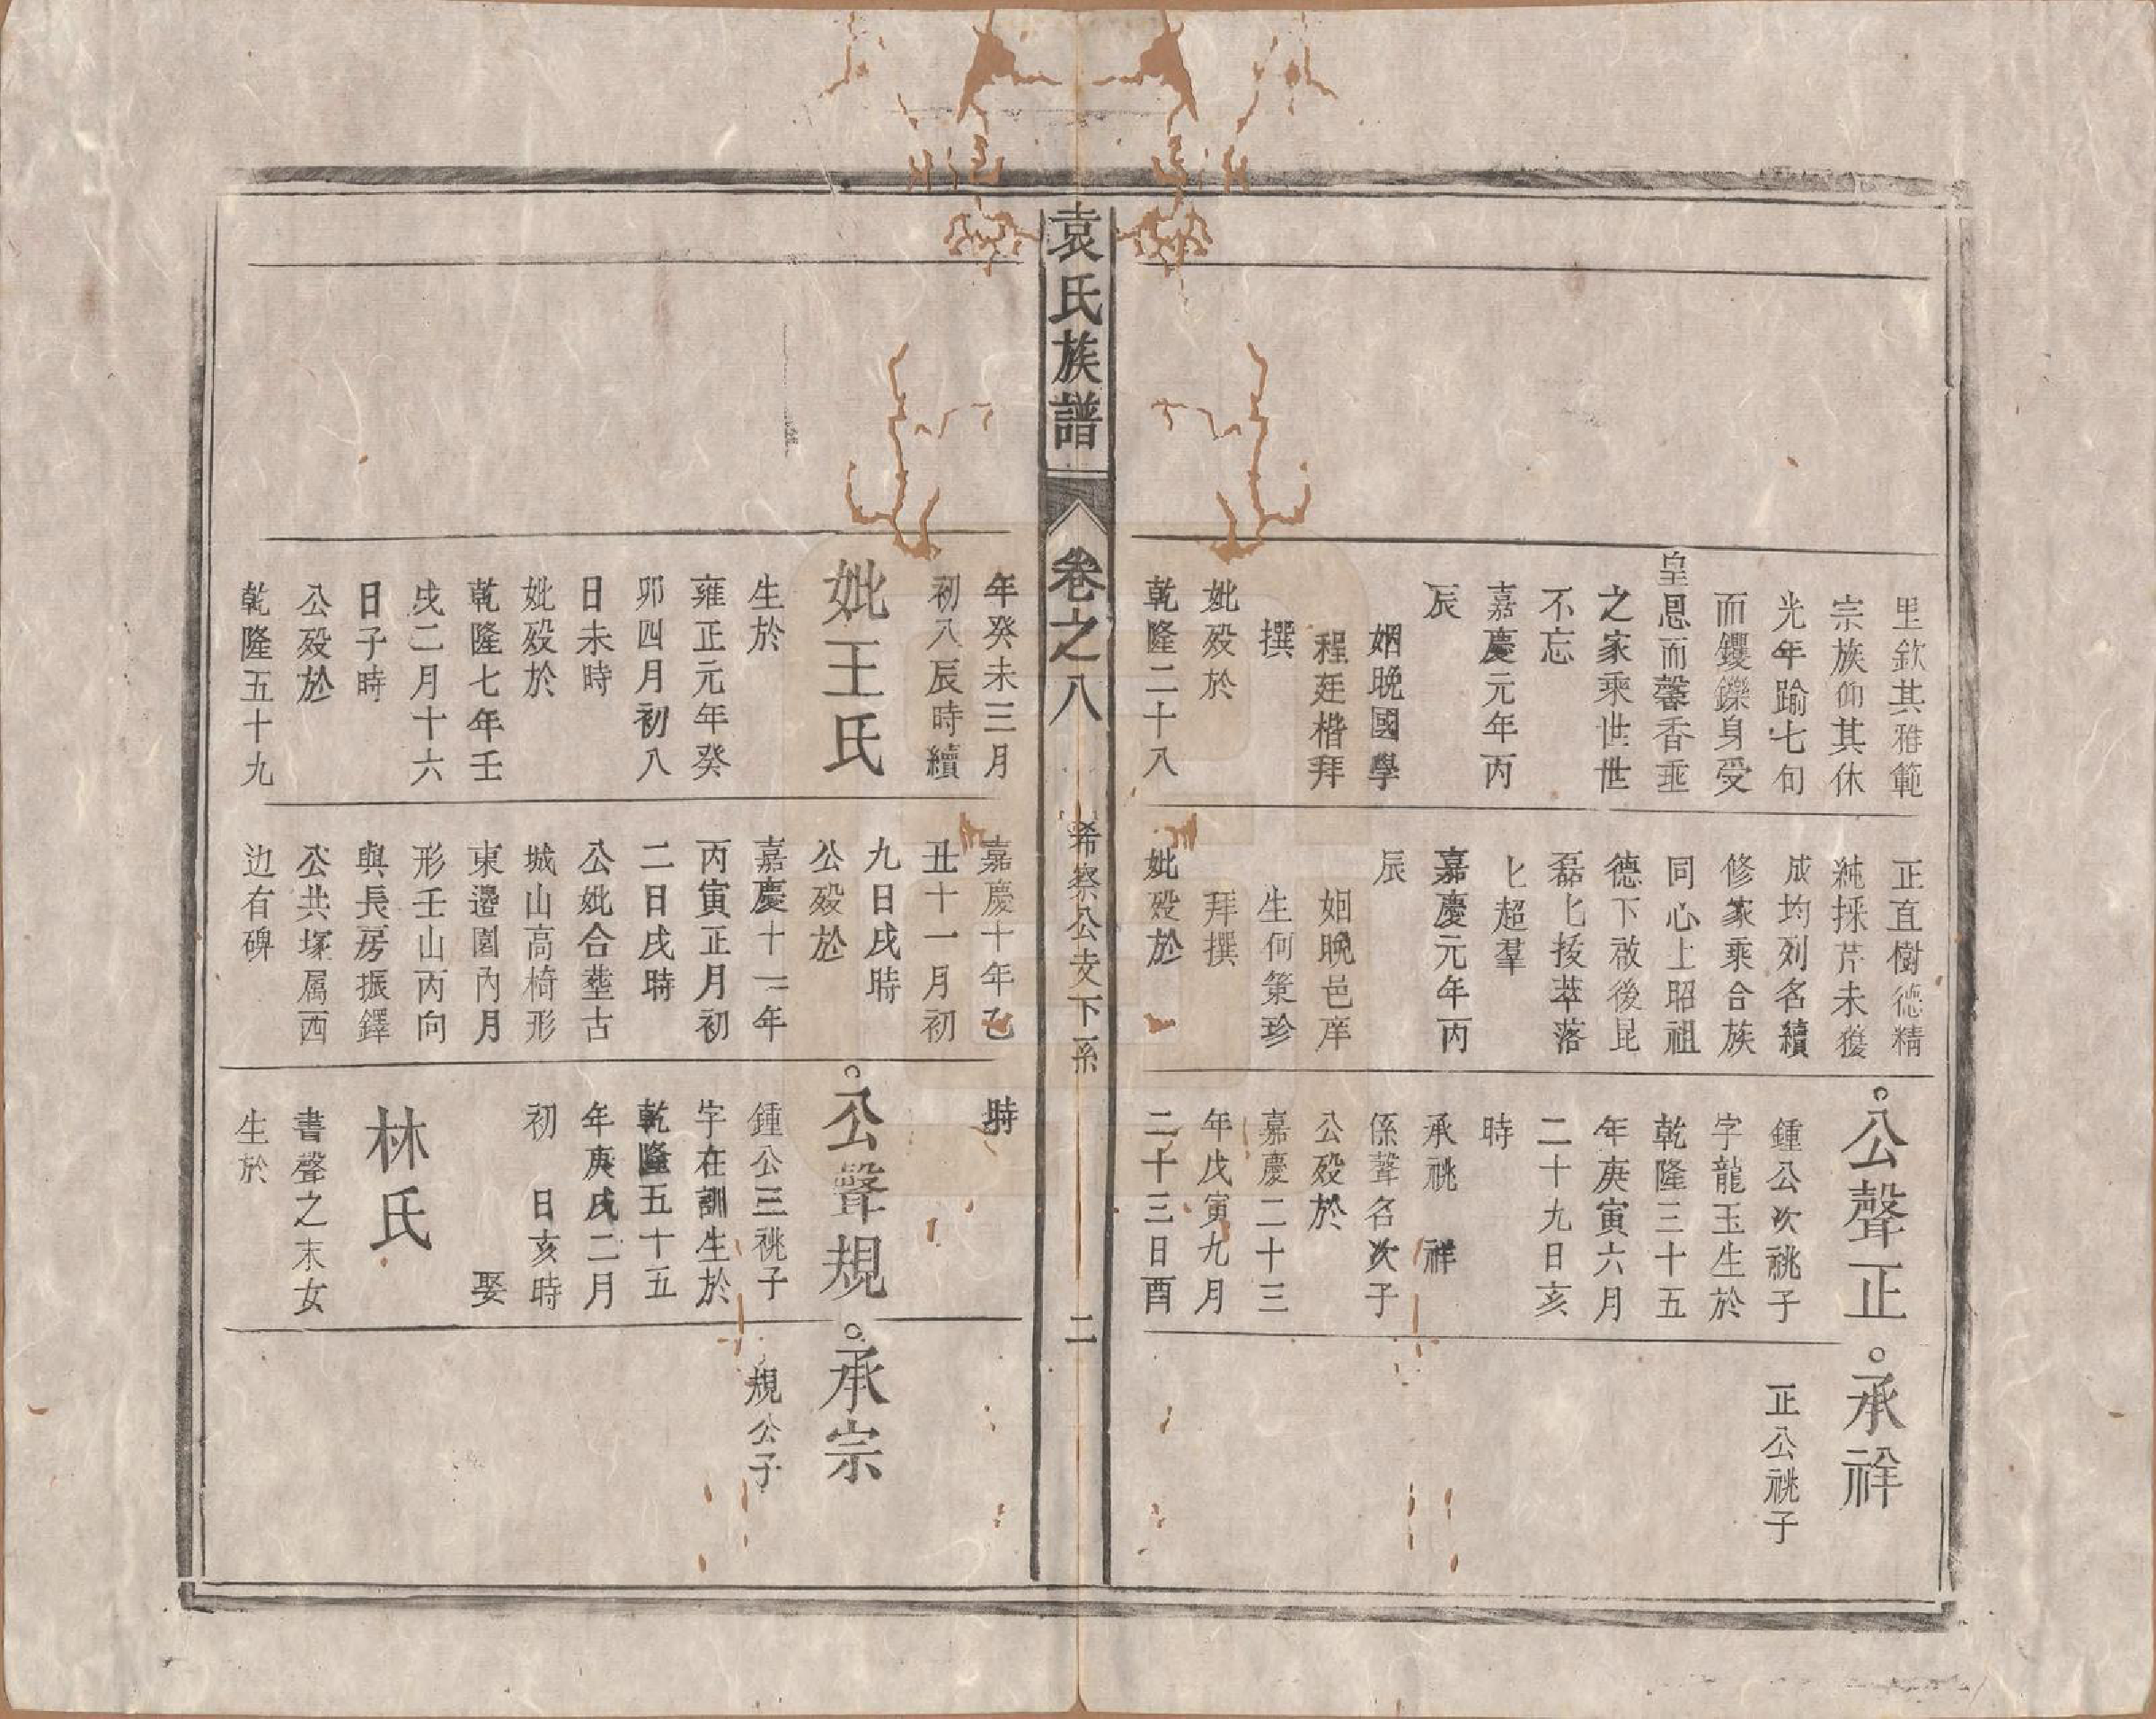 里欽其雅範
宗族仰其休
光年踰七旬
而钁鑠身受
皇恩而馨香垂
之家乘世世
不忘
嘉慶元年丙
辰
姻晚國學
程廷楷拜
撰
妣殁於
乾隆二十八
正直樹德精
純採芹未獲
成均列名續
修家乘合族
同心上昭祖
德下啟後昆
磊匕拔萃落
匕超羣
嘉慶元年丙
辰
姻晚邑庠
生何策珍
拜撰
妣殁於
公聲正
鍾公次祧子
字龍玉生於
乾隆三十五
年庚寅六月
二十九日亥
時
承祧 祥
係聲名次子
公殁於
嘉慶二十三
年戊寅九月
二十三日酉
承祥
正公祧子
袁氏族譜
卷之八
希察公支下系
二
年癸未三月
初八辰時續
妣王氏
生於
雍正元年癸
卯四月初八
日未時
妣殁於
乾隆七年壬
戌二月十六
日子時
公殁於
乾隆五十九
嘉慶十年乙
丑十一月初
九日戌時
公殁於
嘉慶十一年
丙寅正月初
二日戌時
公妣合塟古
城山高椅形
東邊園內月
形壬山丙向
與長房振鐸
公共塚属西
边有碑
時
公聲規
鍾公三祧子
字在訓生於
乾隆五十五
年庚戌二月
初 日亥時
娶
林氏
書聲之末女
生於
承宗
規公子